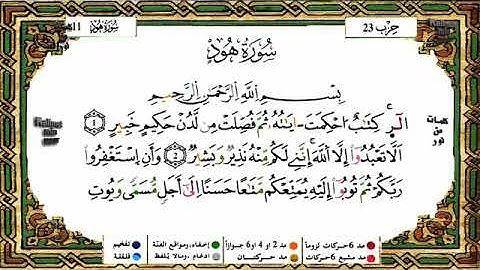 سُورَةُ هُودٍ 11
حِزْب 23
سُورَةُ هُودٍ
بِسْمِ اللَّهِ الرَّحْمَٰنِ الرَّحِيمِ
الٓر كِتَٰبٌ احْكِمَتَ ايَٰتُهُ ثُمَّ فُصِّلَتْ مِن لَّدُنْ حَكِيمٍ خَبِيرٍ ١
اَلَّا تَعْبُدُوٓا إِلَّا اَللَّهَ إِنَّنِے لَكُم مِّنْهُ نَذِيرٌ وَبَشِيرٌ ٢ وَأَنِ اِسْتَغْفِرُوا
رَبَّكُمْ ثُمَّ تُوبُوٓا إِلَيْهِ يُمَتِّعْكُم مَّتَٰعًا حَسَنًا إِلَىٰٓ أَجَلٍ مُّسَمًّى وَيُوتِ
كلمات
من
نور
مد 6 حركات لزوماً
مد 2 او 4 او 6 جوازاً
إخفاء، ومواقع الغنة
تفخيم
مد مشبع 6 حركات
مد حركتان
ادغام، ومالا يلفظ
قلقلة